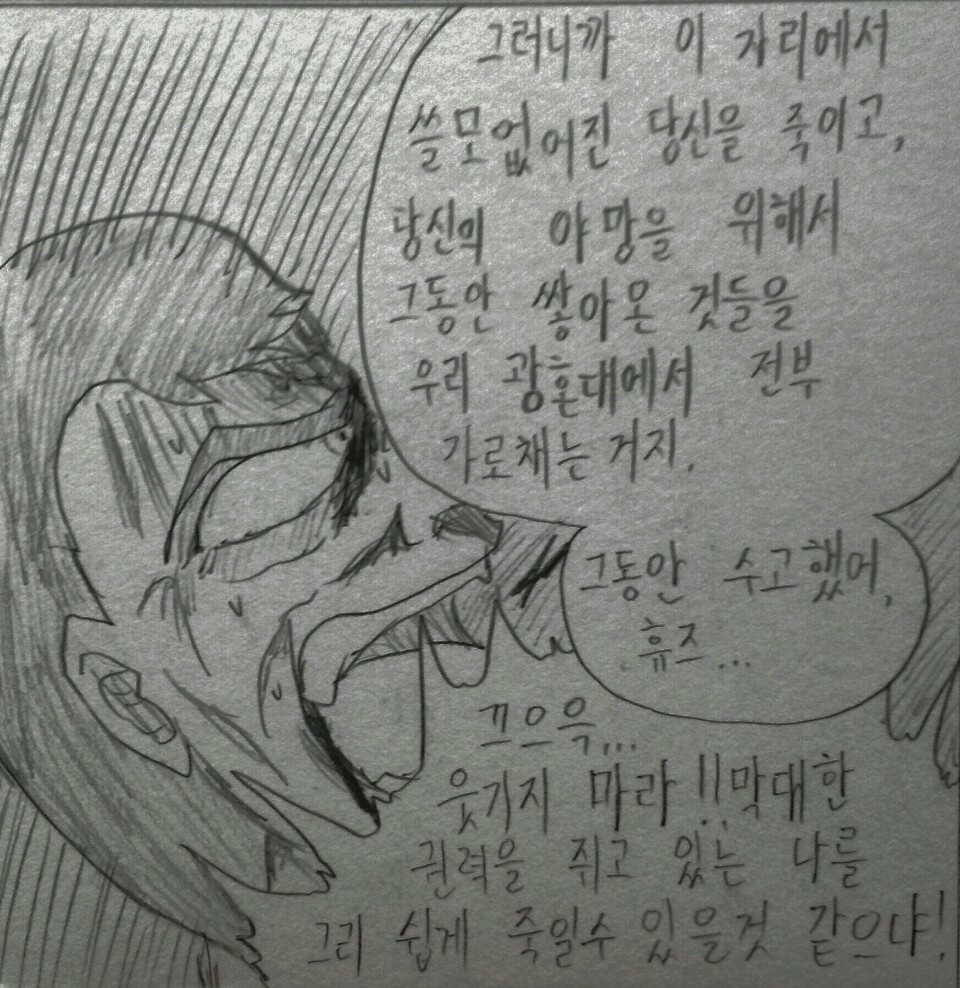 그러니까 이 자리에서
쓸모없어진 당신을 죽이고,
당신의 야망을 위해서
그동안 쌓아온 것들을
우리 광혼대에서 전부
가로채는 거지.
그동안 수고했어,
휴즈...
끄으윽...
웃기지 마라!!막대한
권력을 쥐고 있는 나를
그리 쉽게 죽일수 있을것 같으냐!